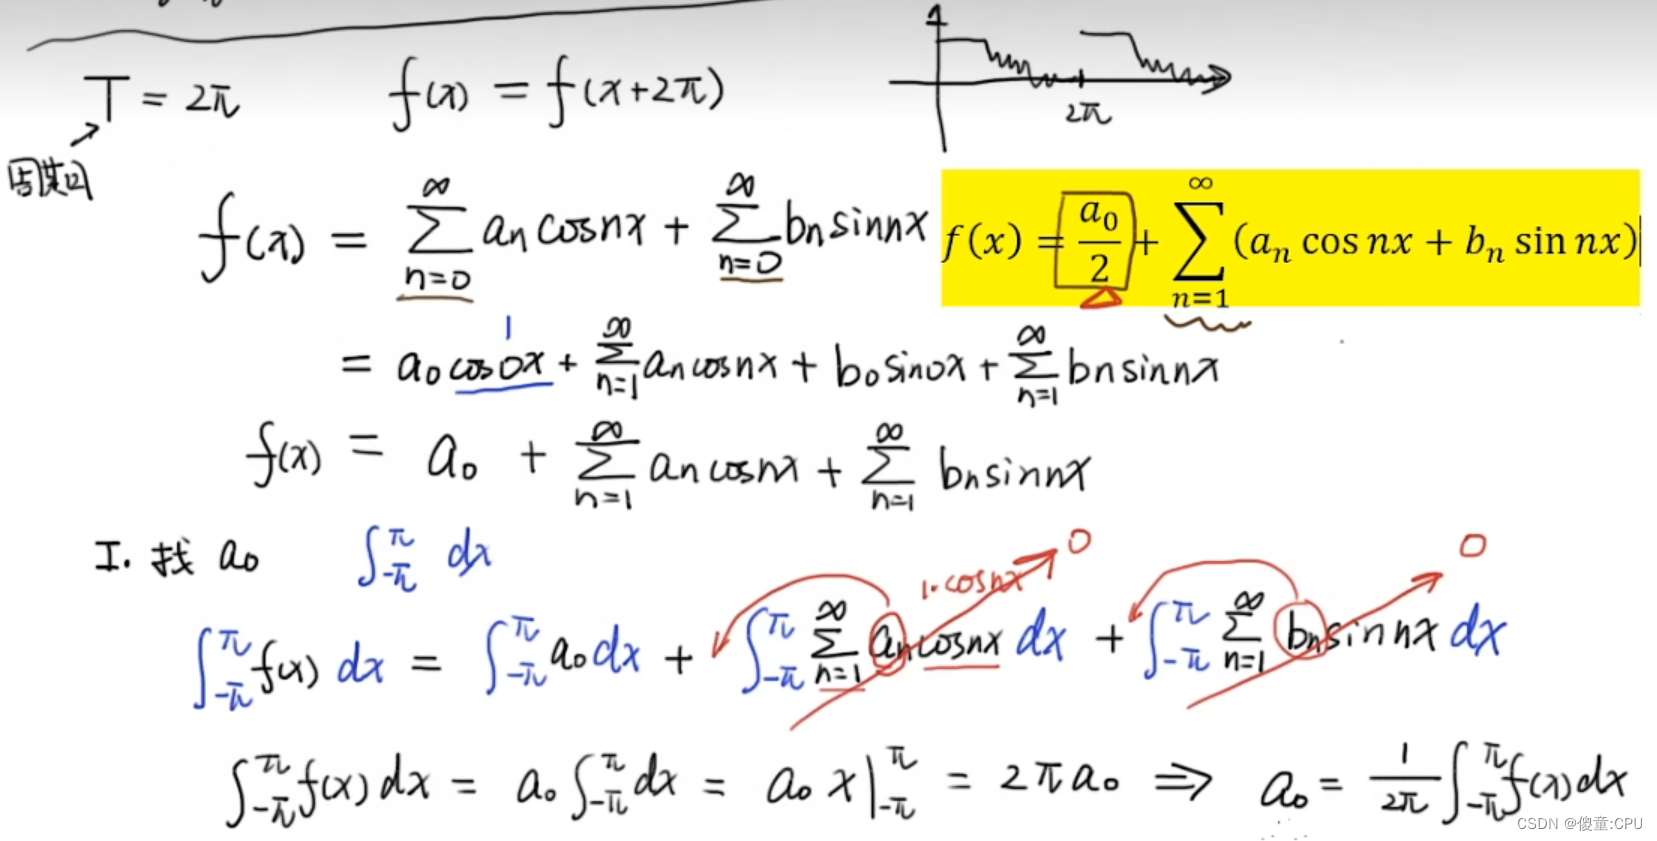 T = 2π f(x) = f(x+2π)
2π
周期
f(x) = ∑_{n=0}^{∞} an cosnx + ∑_{n=0}^{∞} bn sinnx
f(x) = a₀/2 + ∑_{n=1}^{∞} (aₙ cos nx + bₙ sin nx)
1
= a₀ cos0x + ∑_{n=1}^{∞} an cosnx + b₀ sin0x + ∑_{n=1}^{∞} bn sinnx
f(x) = a₀ + ∑_{n=1}^{∞} an cosnx + ∑_{n=1}^{∞} bn sinnx
I. 找 a₀ ∫_{-π}^{π} dx
1·cosnx 0 0
∫_{-π}^{π} f(x) dx = ∫_{-π}^{π} a₀ dx + ∫_{-π}^{π} ∑_{n=1}^{∞} an cosnx dx + ∫_{-π}^{π} ∑_{n=1}^{∞} bn sinnx dx
∫_{-π}^{π} f(x) dx = a₀ ∫_{-π}^{π} dx = a₀ x |_{-π}^{π} = 2πa₀ ⇒ a₀ = 1/2π ∫_{-π}^{π} f(x) dx
CSDN @傻童:CPU